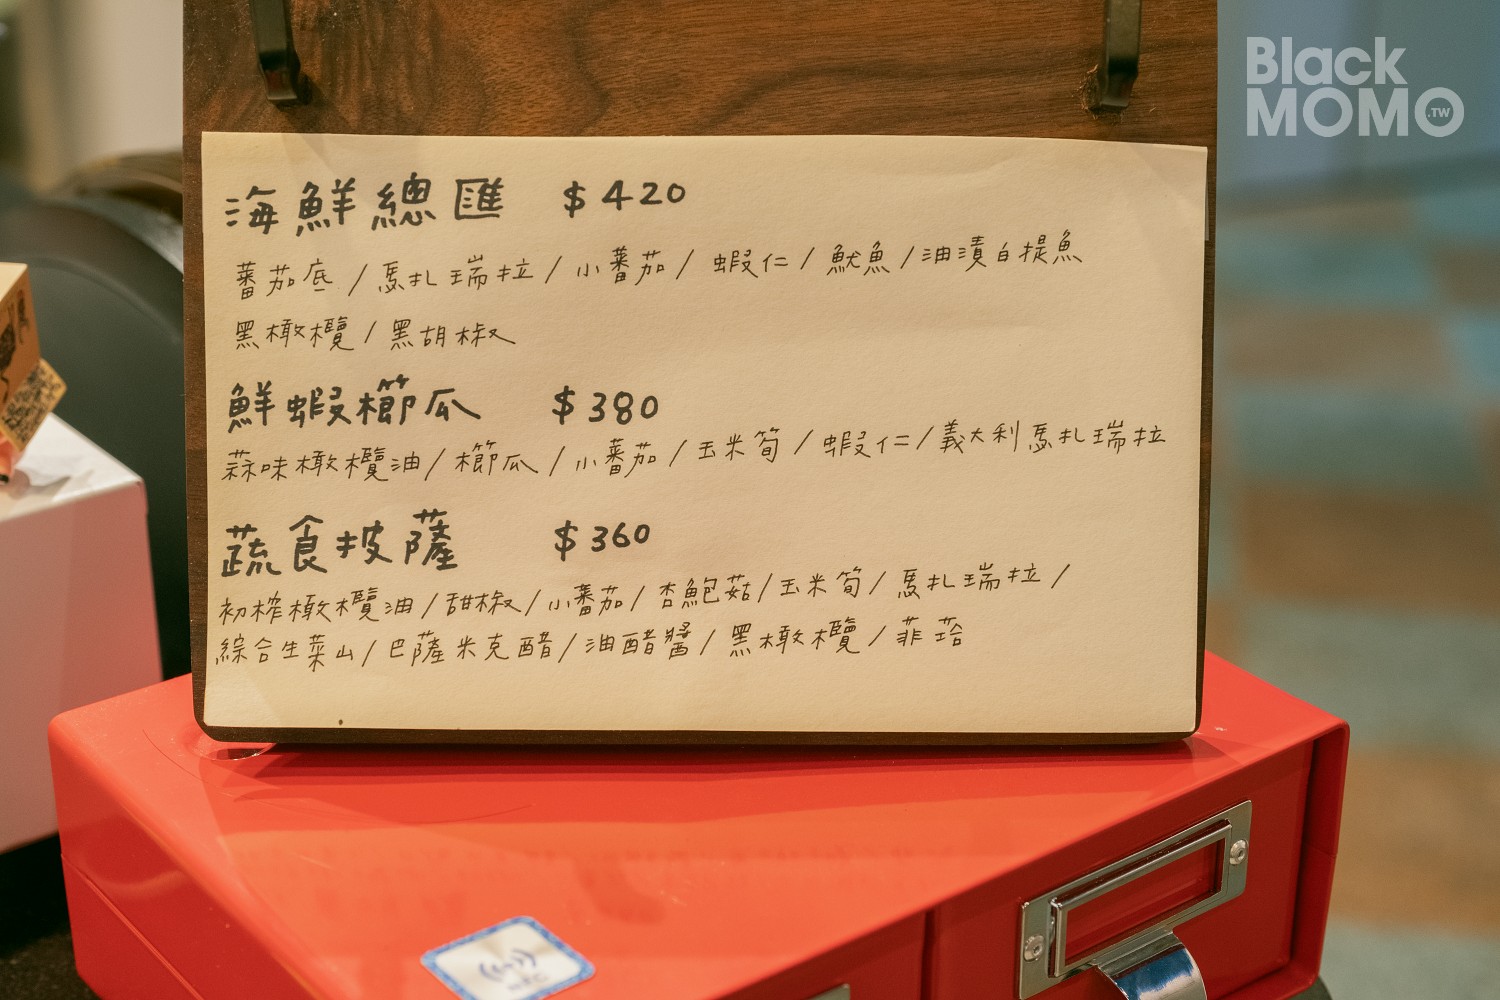 Black
MOMO.TW
海鮮總匯 $420
蕃茄底/馬扎瑞拉/小蕃茄/蝦仁/魷魚/油漬白提魚
黑橄欖/黑胡椒
鮮蝦櫛瓜 $380
蒜味橄欖油/櫛瓜/小蕃茄/玉米筍/蝦仁/義大利馬扎瑞拉
蔬食披薩 $360
初榨橄欖油/甜椒/小蕃茄/杏鮑菇/玉米筍/馬扎瑞拉/
綜合生菜山/巴薩米克醋/油醋醬/黑橄欖/菲